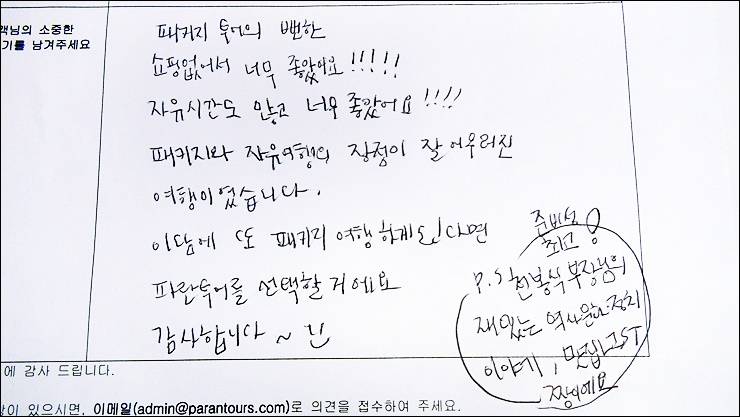 객님의 소중한
기를 남겨주세요
패키지 투어의 뻔한
쇼핑없어서 너무 좋았어요!!!!!
자유시간도 많고 너무 좋았어요!!!!
패키지와 자유여행의 장점이 잘 어우러진
여행이었습니다.
이담에 또 패키지 여행하게된다면
파란투어를 선택할거에요
감사합니다~
준비성
최고
P.S 전봉식 부장님의
재밌는 역사문화정치
이야기, 맛집 LIST
짱이에요
에 감사 드립니다.
있으시면, 이메일(admin@parantours.com)로 의견을 접수하여 주세요.